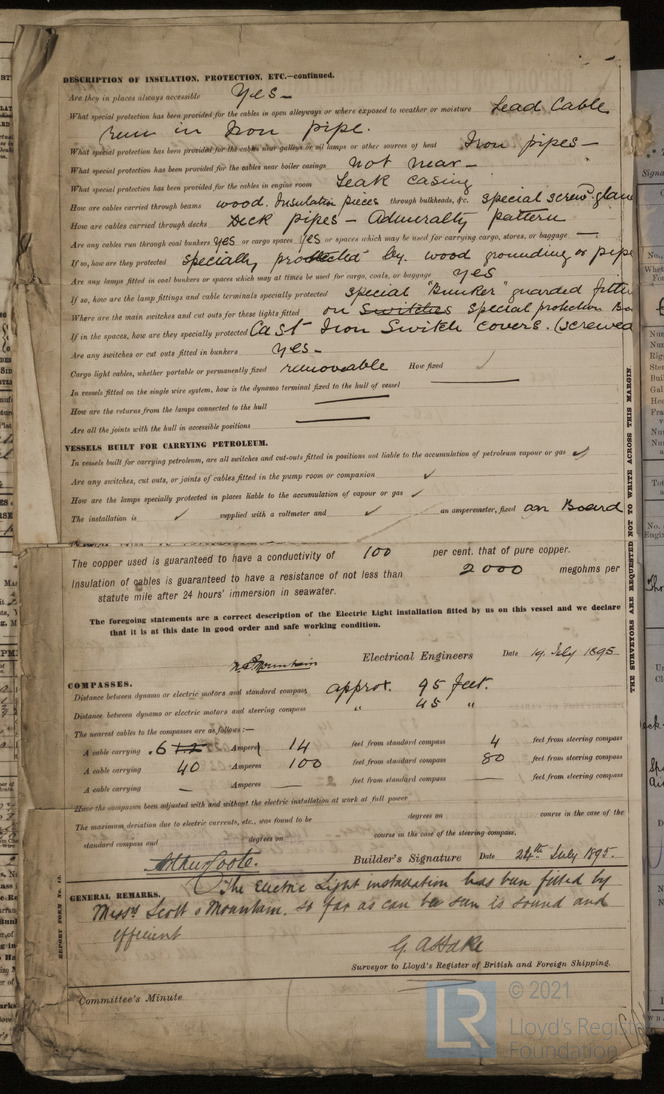 DESCRIPTION OF INSULATION, PROTECTION, ETC.—continued.
Are they in places always accessible Yes—
What special protection has been provided for the cables in open alleyways or where exposed to weather or moisture Lead Cable
run in Iron pipe.
What special protection has been provided for the cables near galleys or oil lamps or other sources of heat Iron pipes—
What special protection has been provided for the cables near boiler casings not near—
What special protection has been provided for the cables in engine room Leak casing
How are cables carried through beams wood. Insulation pieces through bulkheads, &c. special screw glan
How are cables carried through decks Deck pipes — Admiralty pattern
Are any cables run through coal bunkers yes or cargo spaces yes or spaces which may be used for carrying cargo, stores, or baggage —
If so, how are they protected specially protected by wood grounding or pipe
Are any lamps fitted in coal bunkers or spaces which may at times be used for cargo, coals, or baggage yes
If so, how are the lamp fittings and cable terminals specially protected special "Bunker" guarded fitti
Where are the main switches and cut outs for these lights fitted on Switches special protection Bo
If in the spaces, how are they specially protected Cast Iron Switch covers. (screwed
Are any switches or cut outs fitted in bunkers yes—
Cargo light cables, whether portable or permanently fixed removeable How fixed ✓
In vessels fitted on the single wire system, how is the dynamo terminal fixed to the hull of vessel —
How are the returns from the lamps connected to the hull —
Are all the joints with the hull in accessible positions —
VESSELS BUILT FOR CARRYING PETROLEUM.
In vessels built for carrying petroleum, are all switches and cut-outs fitted in positions not liable to the accumulation of petroleum vapour or gas ✓
Are any switches, cut outs, or joints of cables fitted in the pump room or companion ✓
How are the lamps specially protected in places liable to the accumulation of vapour or gas ✓
The installation is ✓ supplied with a voltmeter and ✓ an amperemeter, fixed on Board
The copper used is guaranteed to have a conductivity of 100 per cent. that of pure copper.
Insulation of cables is guaranteed to have a resistance of not less than 2000 megohms per
statute mile after 24 hours' immersion in seawater.
The foregoing statements are a correct description of the Electric Light installation fitted by us on this vessel and we declare
that it is at this date in good order and safe working condition.
Electrical Engineers Date 19 July 1895
COMPASSES.
Distance between dynamo or electric motors and standard compass approx. 95 feet.
Distance between dynamo or electric motors and steering compass " 45 "
The nearest cables to the compasses are as follows:—
A cable carrying .6 12 Amperes 14 feet from standard compass 4 feet from steering compass
A cable carrying 40 Amperes 100 feet from standard compass 80 feet from steering compass
A cable carrying — Amperes — feet from standard compass — feet from steering compass
Have the compasses been adjusted with and without the electric installation at work at full power
The maximum deviation due to electric currents, etc., was found to be degrees on course in the case of the
standard compass and degrees on course in the case of the steering compass.
Arthur Coote. Builder's Signature Date 24th July 1895.
GENERAL REMARKS. The Electric Light installation has been fitted by
Messrs Scott & Mountain. so far as can be seen is sound and
efficient
Surveyor to Lloyd's Register of British and Foreign Shipping.
Committee's Minute
THE SURVEYORS ARE REQUESTED NOT TO WRITE ACROSS THIS MARGIN.
REPORT FORM No.
LR
© 2021
Lloyd's Register
Foundation